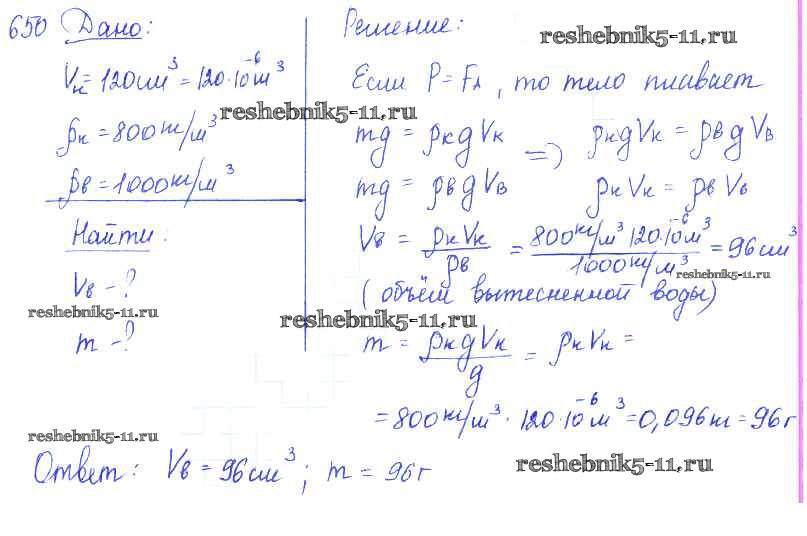 650 Дано:
Vк = 120 см³ = 120·10⁻⁶ м³
ρк = 800 кг/м³
ρв = 1000 кг/м³
Найти:
Vв - ?
m - ?
Решение:
Если P = FА, то тело плавает
mg = ρкgVк
mg = ρвgVв
=> ρкgVк = ρвgVв
ρкVк = ρвVв
Vв = ρкVк / ρв = 800 кг/м³ 120·10⁻⁶ м³ / 1000 кг/м³ = 96 см³
(объём вытесненной воды)
m = ρкgVк / g = ρкVк =
= 800 кг/м³ · 120·10⁻⁶ м³ = 0,096 кг = 96 г
Ответ: Vв = 96 см³; m = 96 г
reshebnik5-11.ru
reshebnik5-11.ru
reshebnik5-11.ru
reshebnik5-11.ru
reshebnik5-11.ru
reshebnik5-11.ru
reshebnik5-11.ru